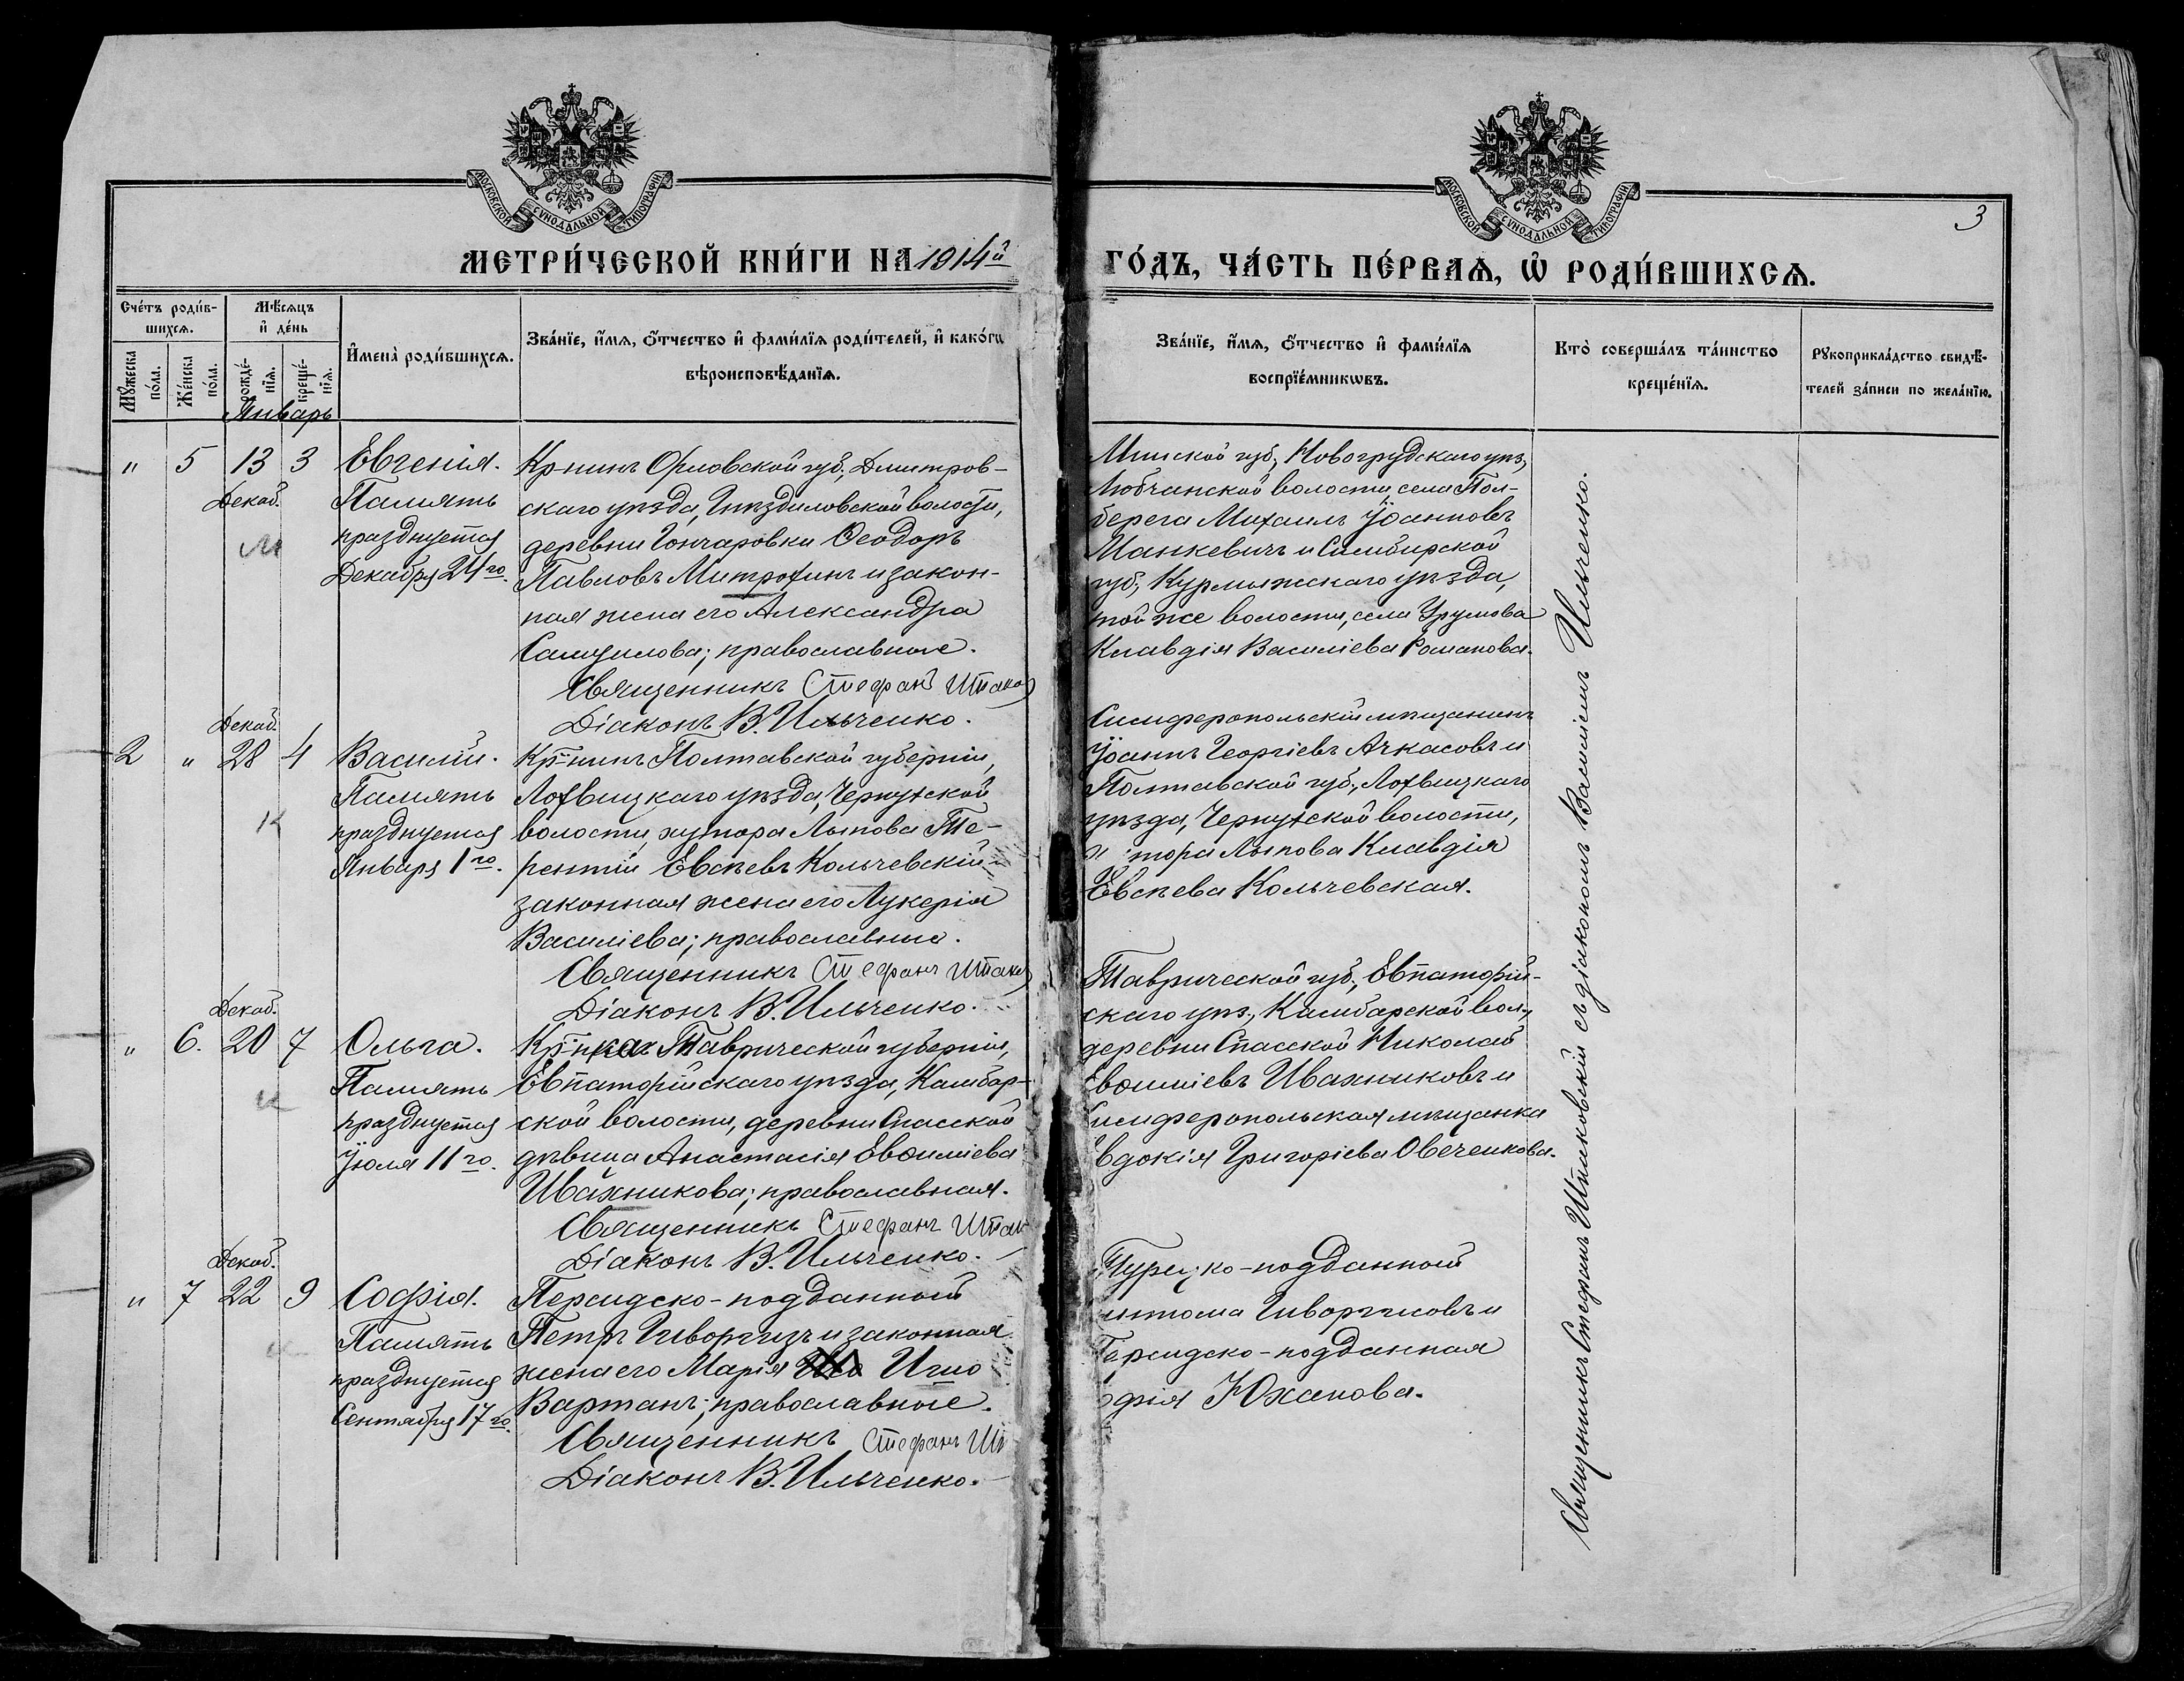 МОСКОВСКОЙ СѴНОДАЛЬНОЙ ТИПОГРАФІИ
МОСКОВСКОЙ СѴНОДАЛЬНОЙ ТИПОГРАФІИ
3
МЕТРИ́ЧЕСКОЙ КНИ́ГИ НА 1914й
ГО́ДЪ, ЧА́СТЬ ПЕ́РВАѦ, Ѡ҆ РОДИ́ВШИХСѦ.
Сче́тъ роди́в-
шихсѧ.
Мꙋжеска по́ла.
Же́нска по́ла.
Мѣ́сѧцъ
и҆ де́нь
рожде́-
нїѧ.
креще́-
нїѧ.
И҆мена̀ роди́вшихсѧ.
Зва́нїе, и҆́мѧ, ѻ҆́тчество и҆ фами́лїѧ роди́телей, и҆ како́гѡ
вѣроисповѣ́данїѧ.
Зва́нїе, и҆́мѧ, ѻ҆́тчество и҆ фами́лїѧ
воспрїе́мникѡвъ.
Кто̀ соверша́лъ та́инство
креще́нїѧ.
Рꙋкоприкла́дство свидѣ́-
телей за́писи по жела́нїю.
Январь
" 5 13 3 Евгенія.
Декаб.
Память
празднуется
Декабря 24го.
Кр̄нинъ Орловской губ., Дмитров-
скаго уѣзда, Гнѣздиловской волости,
деревни Гончаровки Ѳеодоръ
Павловъ Митрохинъ и закон-
ная жена его Александра
Самуилова; православные.
Священникъ Стефанъ
Діаконъ В. Ильченко.
Минской губ., Новогрудскаго уѣз.,
Любчанской волости, села
берега Михаилъ Іоанновъ
Манкевичъ и Симбирской
губ., Курмышскаго уѣзда,
той же волости, села Урумова
Клавдія Василіева Романова.
Декаб.
2 " 28 4 Василій.
Память
празднуется
Января 1го.
Кр̄нинъ Полтавской губерніи,
Лохвицкаго уѣзда, Чернухской
волости, хутора Лыпова Те-
рентій Евсѣевъ Кольчевскій и
законная жена его Лукерія
Василіева; православные.
Священникъ Стефанъ
Діаконъ В. Ильченко.
Симферопольскій мѣщанинъ
Іоаннъ Георгіевъ Ачкасовъ и
Полтавской губ., Лохвицкаго
уѣзда, Чернухской волости,
хутора Лыпова Клавдія
Евсѣева Кольчевская.
Декаб.
" 6. 20 7 Ольга.
Память
празднуется
Іюля 11го.
Кр̄нка Таврической губерніи,
Евпаторійскаго уѣзда, Камбар-
ской волости, деревни Спасской
дѣвица Анастасія Евѳиміева
Ивахникова; православная.
Священникъ Стефанъ
Діаконъ В. Ильченко.
Таврической губ., Евпаторій-
скаго уѣз., Камбарской вол.,
деревни Спасской Николай
Евѳиміевъ Ивахниковъ и
Симферопольская мѣщанка
Евдокія Григоріева Овеченкова.
Декаб.
" 7 22 9 Софія.
Память
празднуется
Сентября 17го.
Персидско-подданный
Петръ Гиворгизъ и законная
жена его Марія Игио
Вартанъ; православные.
Священникъ Стефанъ
Діаконъ В. Ильченко.
Турецко-подданный
Гиворгисовъ и
Персидско-подданная
Юханова.
Священникъ Стефанъ Штаковскій съ діакономъ Василіемъ Ильченко.